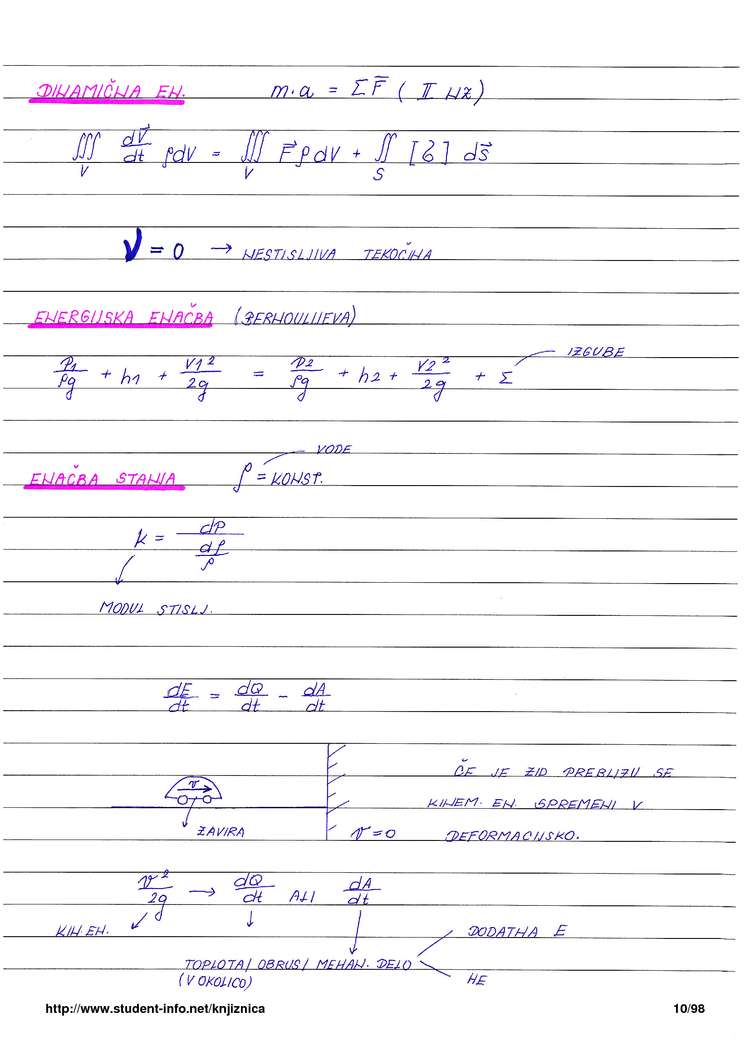 DINAMIČNA EN. m·a = Σ F̅ ( II NZ)
∭_V dV⃗/dt ρdV = ∭_V F⃗ρdV + ∬_S [σ] dS⃗
ν = 0 → NESTISLJIVA TEKOČINA
ENERGIJSKA ENAČBA (BERNOULIJEVA)
P1/ρg + h1 + V1²/2g = P2/ρg + h2 + V2²/2g + Σ IZGUBE
ENAČBA STANJA ρ = KONST. VODE
k = dP / (dρ/ρ)
MODUL STISLJ.
dE/dt = dQ/dt - dA/dt
v
ZAVIRA
v = 0
ČE JE ZID PREBLIZU SE
KINEM. EN. SPREMENI V
DEFORMACIJSKO.
v²/2g → dQ/dt ALI dA/dt
KIN EN.
TOPLOTA/ OBRUS/ MEHAN. DELO
(V OKOLICO)
DODATNA E
NE
http://www.student-info.net/knjiznica 10/98